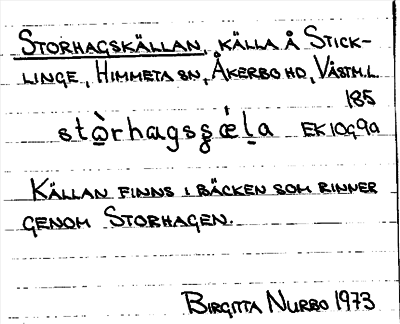 STORHAGSKÄLLAN, KÄLLA Å STICK-
LINGE, HIMMETA SN, ÅKERBO HD, VÄSTM.L.
185
stò̱rhagsʂǽḻa EK 10g9a
KÄLLAN FINNS I BÄCKEN SOM RINNER
GENOM STORHAGEN.
BIRGITTA NURBO 1973